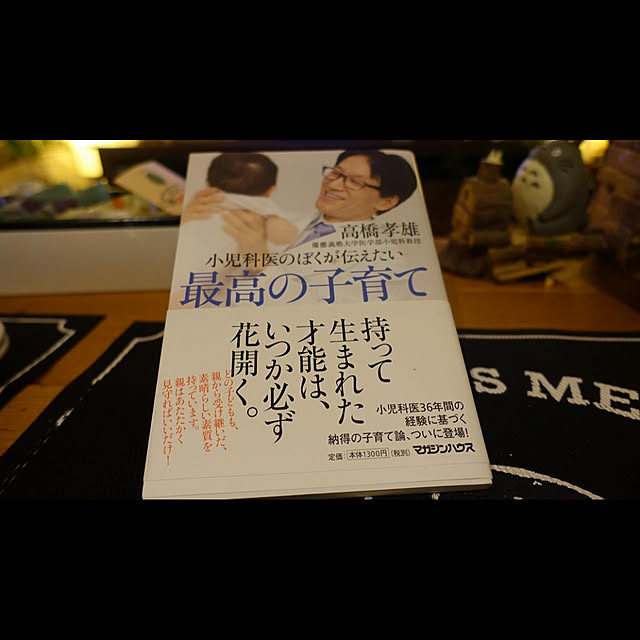 高橋孝雄
慶應義塾大学医学部小児科教授
小児科医のぼくが伝えたい
最高の子育て
持って
生まれた
才能は、
いつか必ず
花開く。
どの子どもも、
親から受け継いだ、
素晴らしい素質を
持っています。
親はあたたかく、
見守ればいいだけ!
小児科医36年間の
経験に基づく
納得の子育て論、ついに登場!
定価:本体1300円(税別)
マガジンハウス
S ME